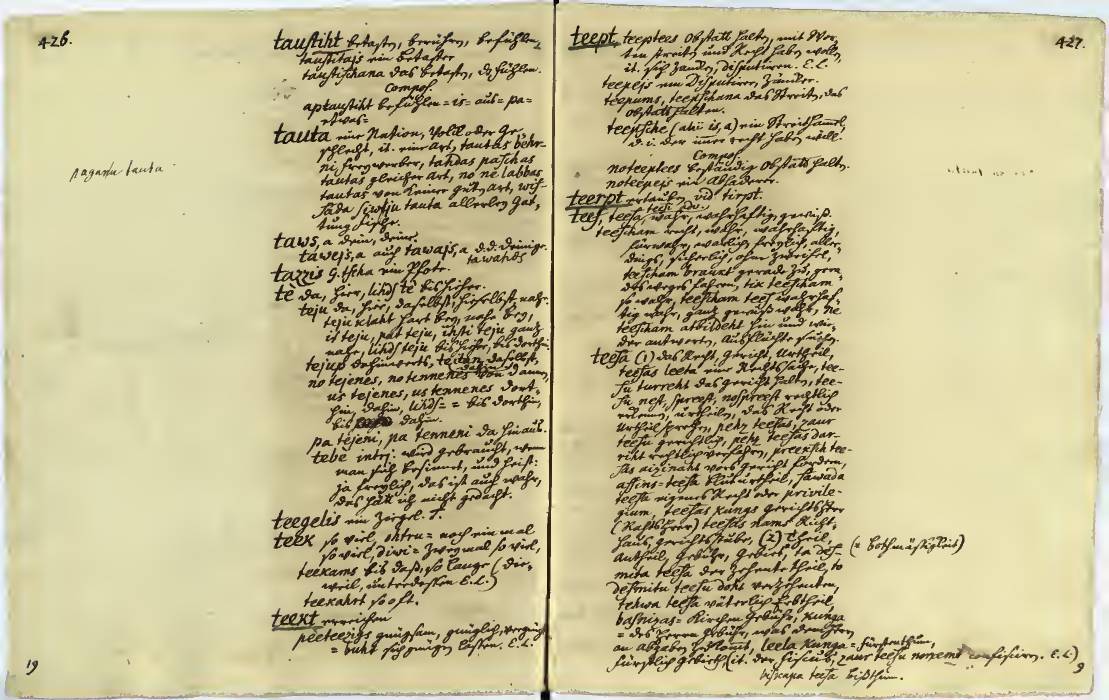 426.
taustiht betasten, berühren, befühlen,
taustitajs ein betaster
taustischana das betasten, das fühlen.
Compos.
aptaustiht befühlen = is = aus = pa =
etwas =
tauta eine Nation, Volck oder Ge,
schlecht, it. eine art, tautas behr,
ni freywerber, tahdas paschas
tautas gleicher art, no ne labbas
tautas von keiner guten art, wis,
sada siwju tauta allerley gat,
tung fische.
pagana tauta
taws, a dein, deine.
tawejs, a auch tawajs, a d. d. deinige.
tawahds
tazzis g. tscha ein Pfote.
tê da, hier, lihds tê bis hieher.
teju da, hier, daselbst, hieselbst, nahe.
teju klaht hart bey, nahe bey,
it teju, pat teju, ihsti teju gantz
nahe, lihds teju bis hieher, bis dorthin.
tejup dahinwerts, daselbst,
no tejenes, no tennenes von dannen,
us tejenes, us tennenes dort,
hin, dahin, lihds = = bis dorthin,
bis dahin.
pa tejeni, pa tenneni da hinaus.
tebe intrj. wird gebraucht, wenn
man sich besinnet, und heist:
ja freylich, das ist auch wahr,
das hätt ich nicht gedacht.
teegelis ein Ziegel. T.
teek so viel, ohtru = noch ein mal
so viel, diwi = zweymal so viel,
teekams bis daß, so lange (die,
weil, unterdeßen E. L.)
teekahrt so oft.
teekt erreichen
peeteezigs gnugsam, gnüglich, vergnügt
= buht sich gnügen laßen. E. L.
19
427.
teept, teeptees obstatt halten, mit Wor,
ten streiten und Recht haben wollen,
it. sich zancken, disputiren. E. L.
teepejs ein Disputirer, Zäncker.
teepums, teepschana das Streiten, das
obstatt halten.
teepsche (ahu is, a) ein Streithammel,
d. i. der immer recht haben will.
Compos.
noteeptees beständig obstatt halten.
noteepejs ein Abhaderer.
teerpt erlauben vid. tirpt.
tees, teesa, wahr, wahrhaftig, gewiß.
teescham recht, wahr, wahrhaftig,
fürwahr, warlich, freylich, aller,
dings, sicherlich, ohne Zweifel,
teescham braukt gerade zu, gera,
des weges fahren, tik teescham
so wahr, teescham tees wahrhaf,
tig wahr, gantz gewiß wahr, ne
teescham atbildeht hin und wie,
der antworten, Ausflüchte suchen.
teesa (1) das Recht, Gericht, Urtheil,
teesas leeta eine Rechtssache, tee-
su turreht das gericht halten, tee-
su nest, spreest, nospreest rechtlich
erkennen, urtheilen, das Recht oder
Urtheil sprechen, pehz teesas, zaur
teesu gerichtlich, pehz teesas dar-
riht rechtlich verfahren, preeksch tee-
sas aizinaht vors gericht fordern,
assins = teesa Bluturtheil, sawada
teesa eigenes Recht oder privile-
gium, teesas kungs gerichtsherr
(Rahtsherr) teesas nams Richt,
haus, gerichtsstube, (2) Theil,
Antheil, Gebühr, Gebiet, ta des- (= Bothmäßigkeit)
mita teesa der zehente theil, to
desmitu teesu doht verzehenden,
tehwa teesa väterlich Erbtheil,
basnizas = Kirchen Gebühr, Kunga
= des Herren Gebühr, was demselben
an abgaben zukommt, leela Kunga = fürstenthum,
fürstlich Gebieth (it. der fiscus, zaur teesu noņemt confisciren. E. L.)
biskapa teesa Bißthum.
9